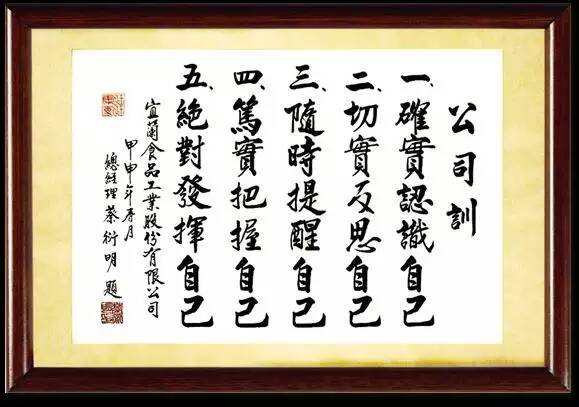 公司訓
一、確實認識自己
二、切實反思自己
三、隨時提醒自己
四、篤實把握自己
五、絕對發揮自己
宜蘭食品工業股份有限公司
甲申年月
總經理蔡衍明題